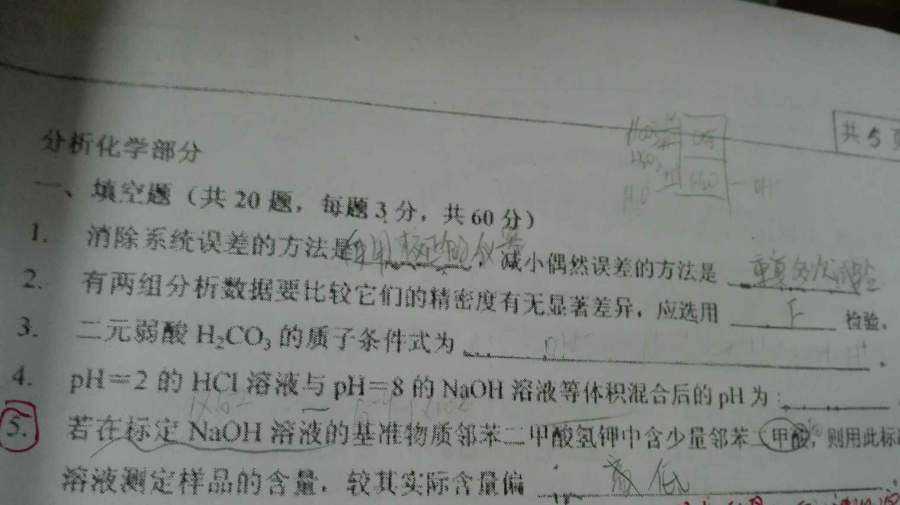 共5页
分析化学部分
一、填空题（共20题，每题3分，共60分）
1. 消除系统误差的方法是利用校正的仪器，减小偶然误差的方法是 重复多次试验
2. 有两组分析数据要比较它们的精密度有无显著差异，应选用 F 检验。
3. 二元弱酸 H₂CO₃ 的质子条件式为 。
4. pH＝2 的 HCl 溶液与 pH＝8 的 NaOH 溶液等体积混合后的 pH 为：
5. 若在标定 NaOH 溶液的基准物质邻苯二甲酸氢钾中含少量邻苯二甲酸，则用此标
溶液测定样品的含量，较其实际含量偏 低